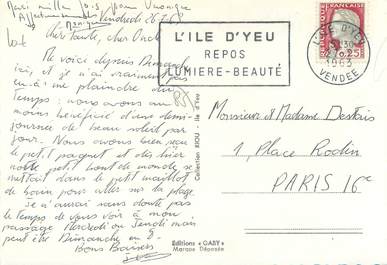 Merci mille fois pour Véronique
Affectueusement
Monique
Vendredi 26-7-68
cher Tante, cher Oncle
Me voici depuis Dimanche
ici, et je n'ai vraiment pas
à me plaindre du
temps : nous avons au
moins bénéficié d'une demi-
journée de beau soleil par
jour. Nous avons bien reçu
le petit paquet et dès hier
notre petit bout de monde se
mettait dans le petit maillot
de bain pour aller sur la plage.
je n'aurai sans doute pas
le temps de vous voir à mon
passage Mercredi ou Jeudi mais
peut être Dimanche en 8.
Bons Baisers
85
Collection RIOU - Ile d'Yeu
Editions « GABY »
Marque Déposée
L'ILE D'YEU
REPOS
LUMIERE-BEAUTÉ
ILE D'YEU
27-7
1963
VENDEE
FRANÇAISE
0,25
Monsieur et Madame Destais
1, Place Rodin
PARIS 16e